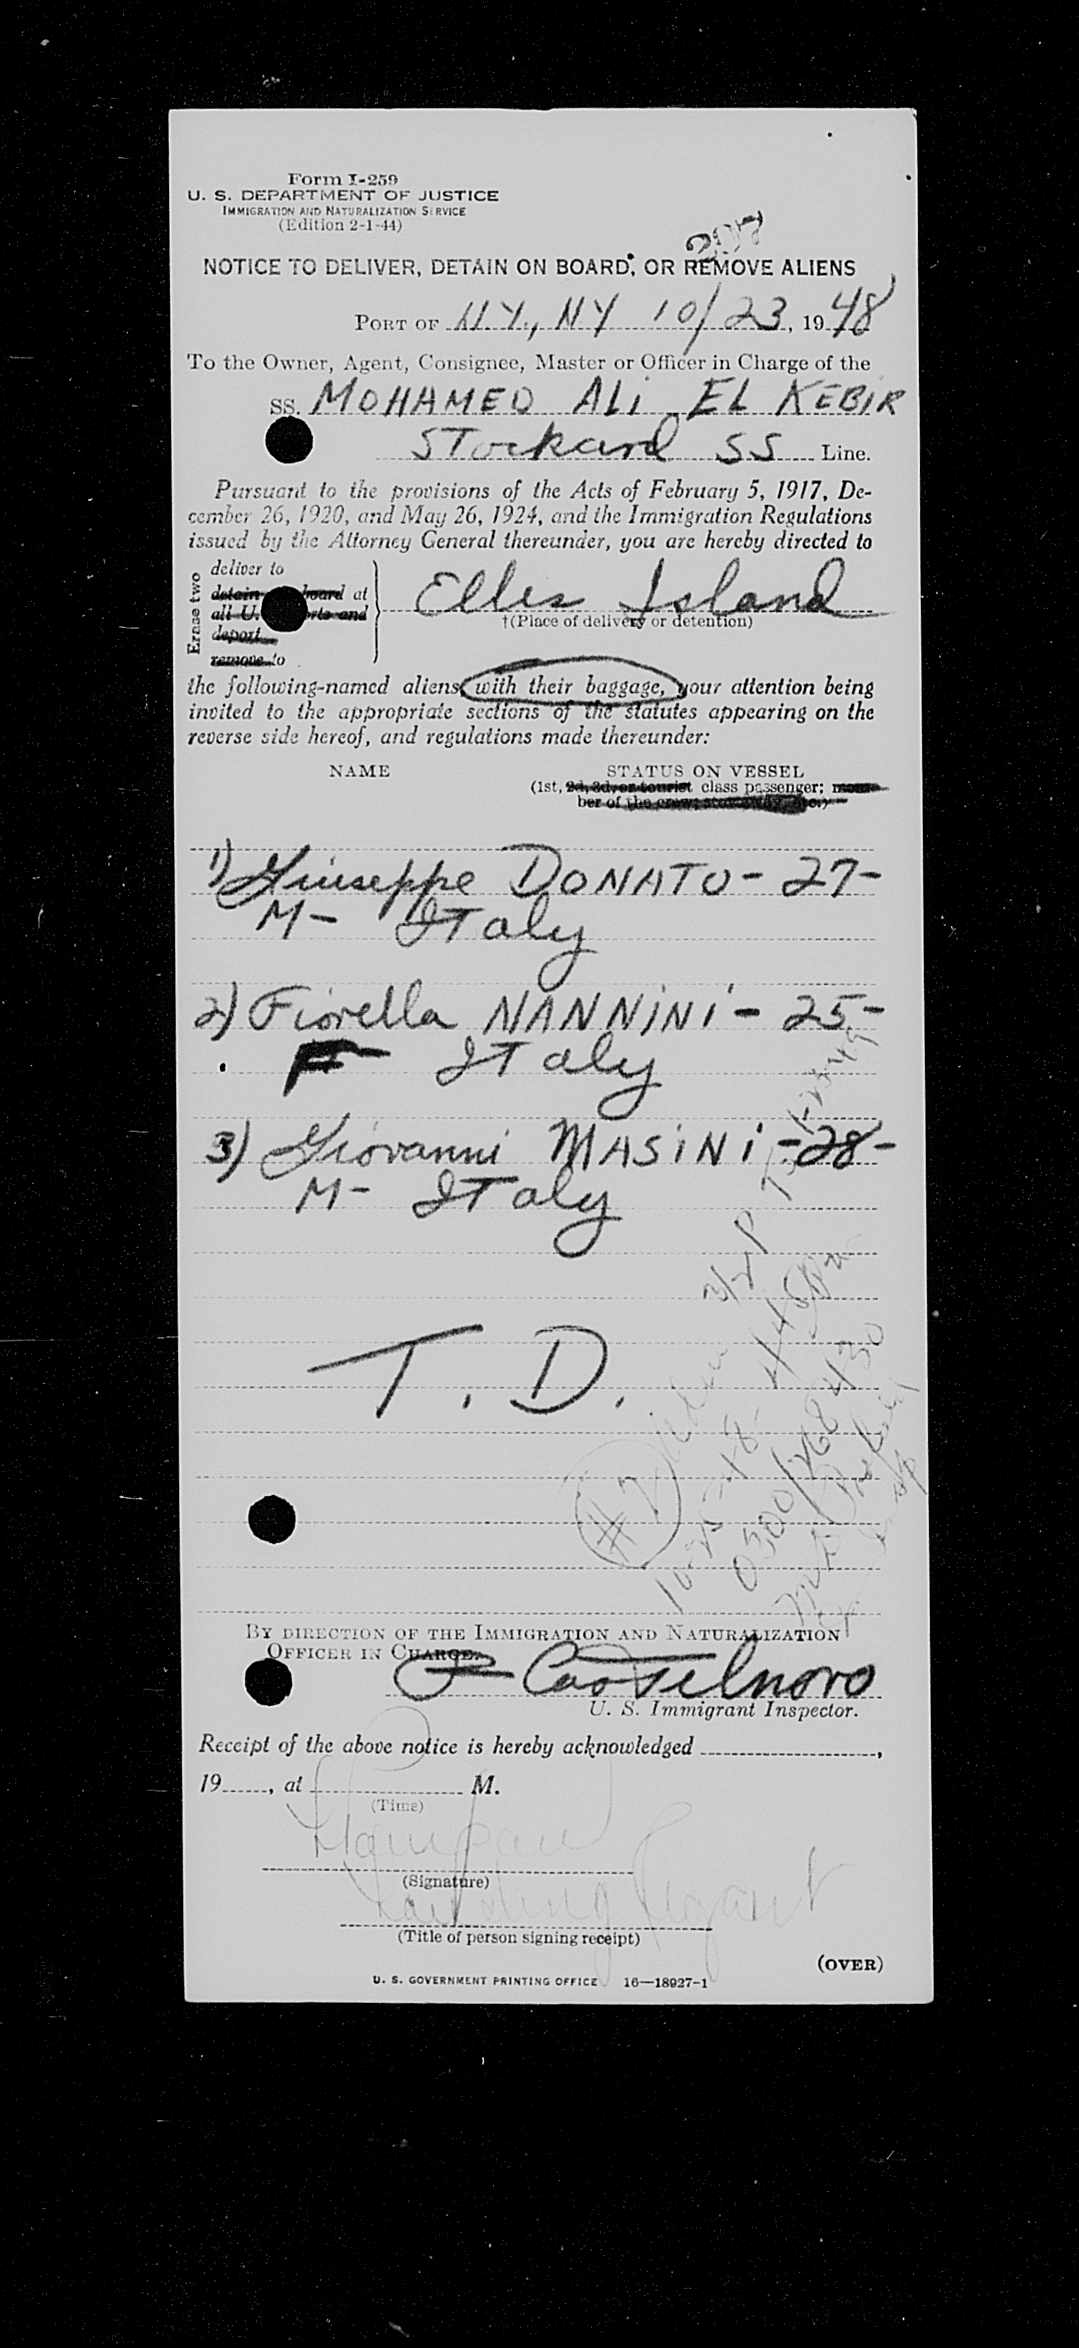 Form I-259
U. S. DEPARTMENT OF JUSTICE
IMMIGRATION AND NATURALIZATION SERVICE
(Edition 2-1-44)
207
NOTICE TO DELIVER, DETAIN ON BOARD, OR REMOVE ALIENS
PORT OF N.Y., NY 10/23, 1948
To the Owner, Agent, Consignee, Master or Officer in Charge of the
SS. MOHAMED ALi EL KEBIR
STockard SS Line.
Pursuant to the provisions of the Acts of February 5, 1917, De-
cember 26, 1920, and May 26, 1924, and the Immigration Regulations
issued by the Attorney General thereunder, you are hereby directed to
Erase two
deliver to
detain board at
all U. ports and
deport
remove to
Ellis Island
†(Place of delivery or detention)
the following-named aliens with their baggage, your attention being
invited to the appropriate sections of the statutes appearing on the
reverse side hereof, and regulations made thereunder:
NAME STATUS ON VESSEL
(1st, 2d, 3d, or tourist class passenger; mem-
ber of the crew; stowaway, etc.)
1) Giuseppe DONATO - 27 -
M - ITaly
2) Fiorella NANNiNi - 25 -
F ITaly
3) Giovanni MASiNi - 28 -
M - ITaly
T. D.
#2
10-25-48
0300/
BY DIRECTION OF THE IMMIGRATION AND NATURALIZATION
OFFICER IN CHARGE.
P Castelnovo
U. S. Immigrant Inspector.
Receipt of the above notice is hereby acknowledged ,
19 , at M.
(Time)
(Signature)
Landing Agent
(Title of person signing receipt)
(OVER)
U. S. GOVERNMENT PRINTING OFFICE 16—18927-1